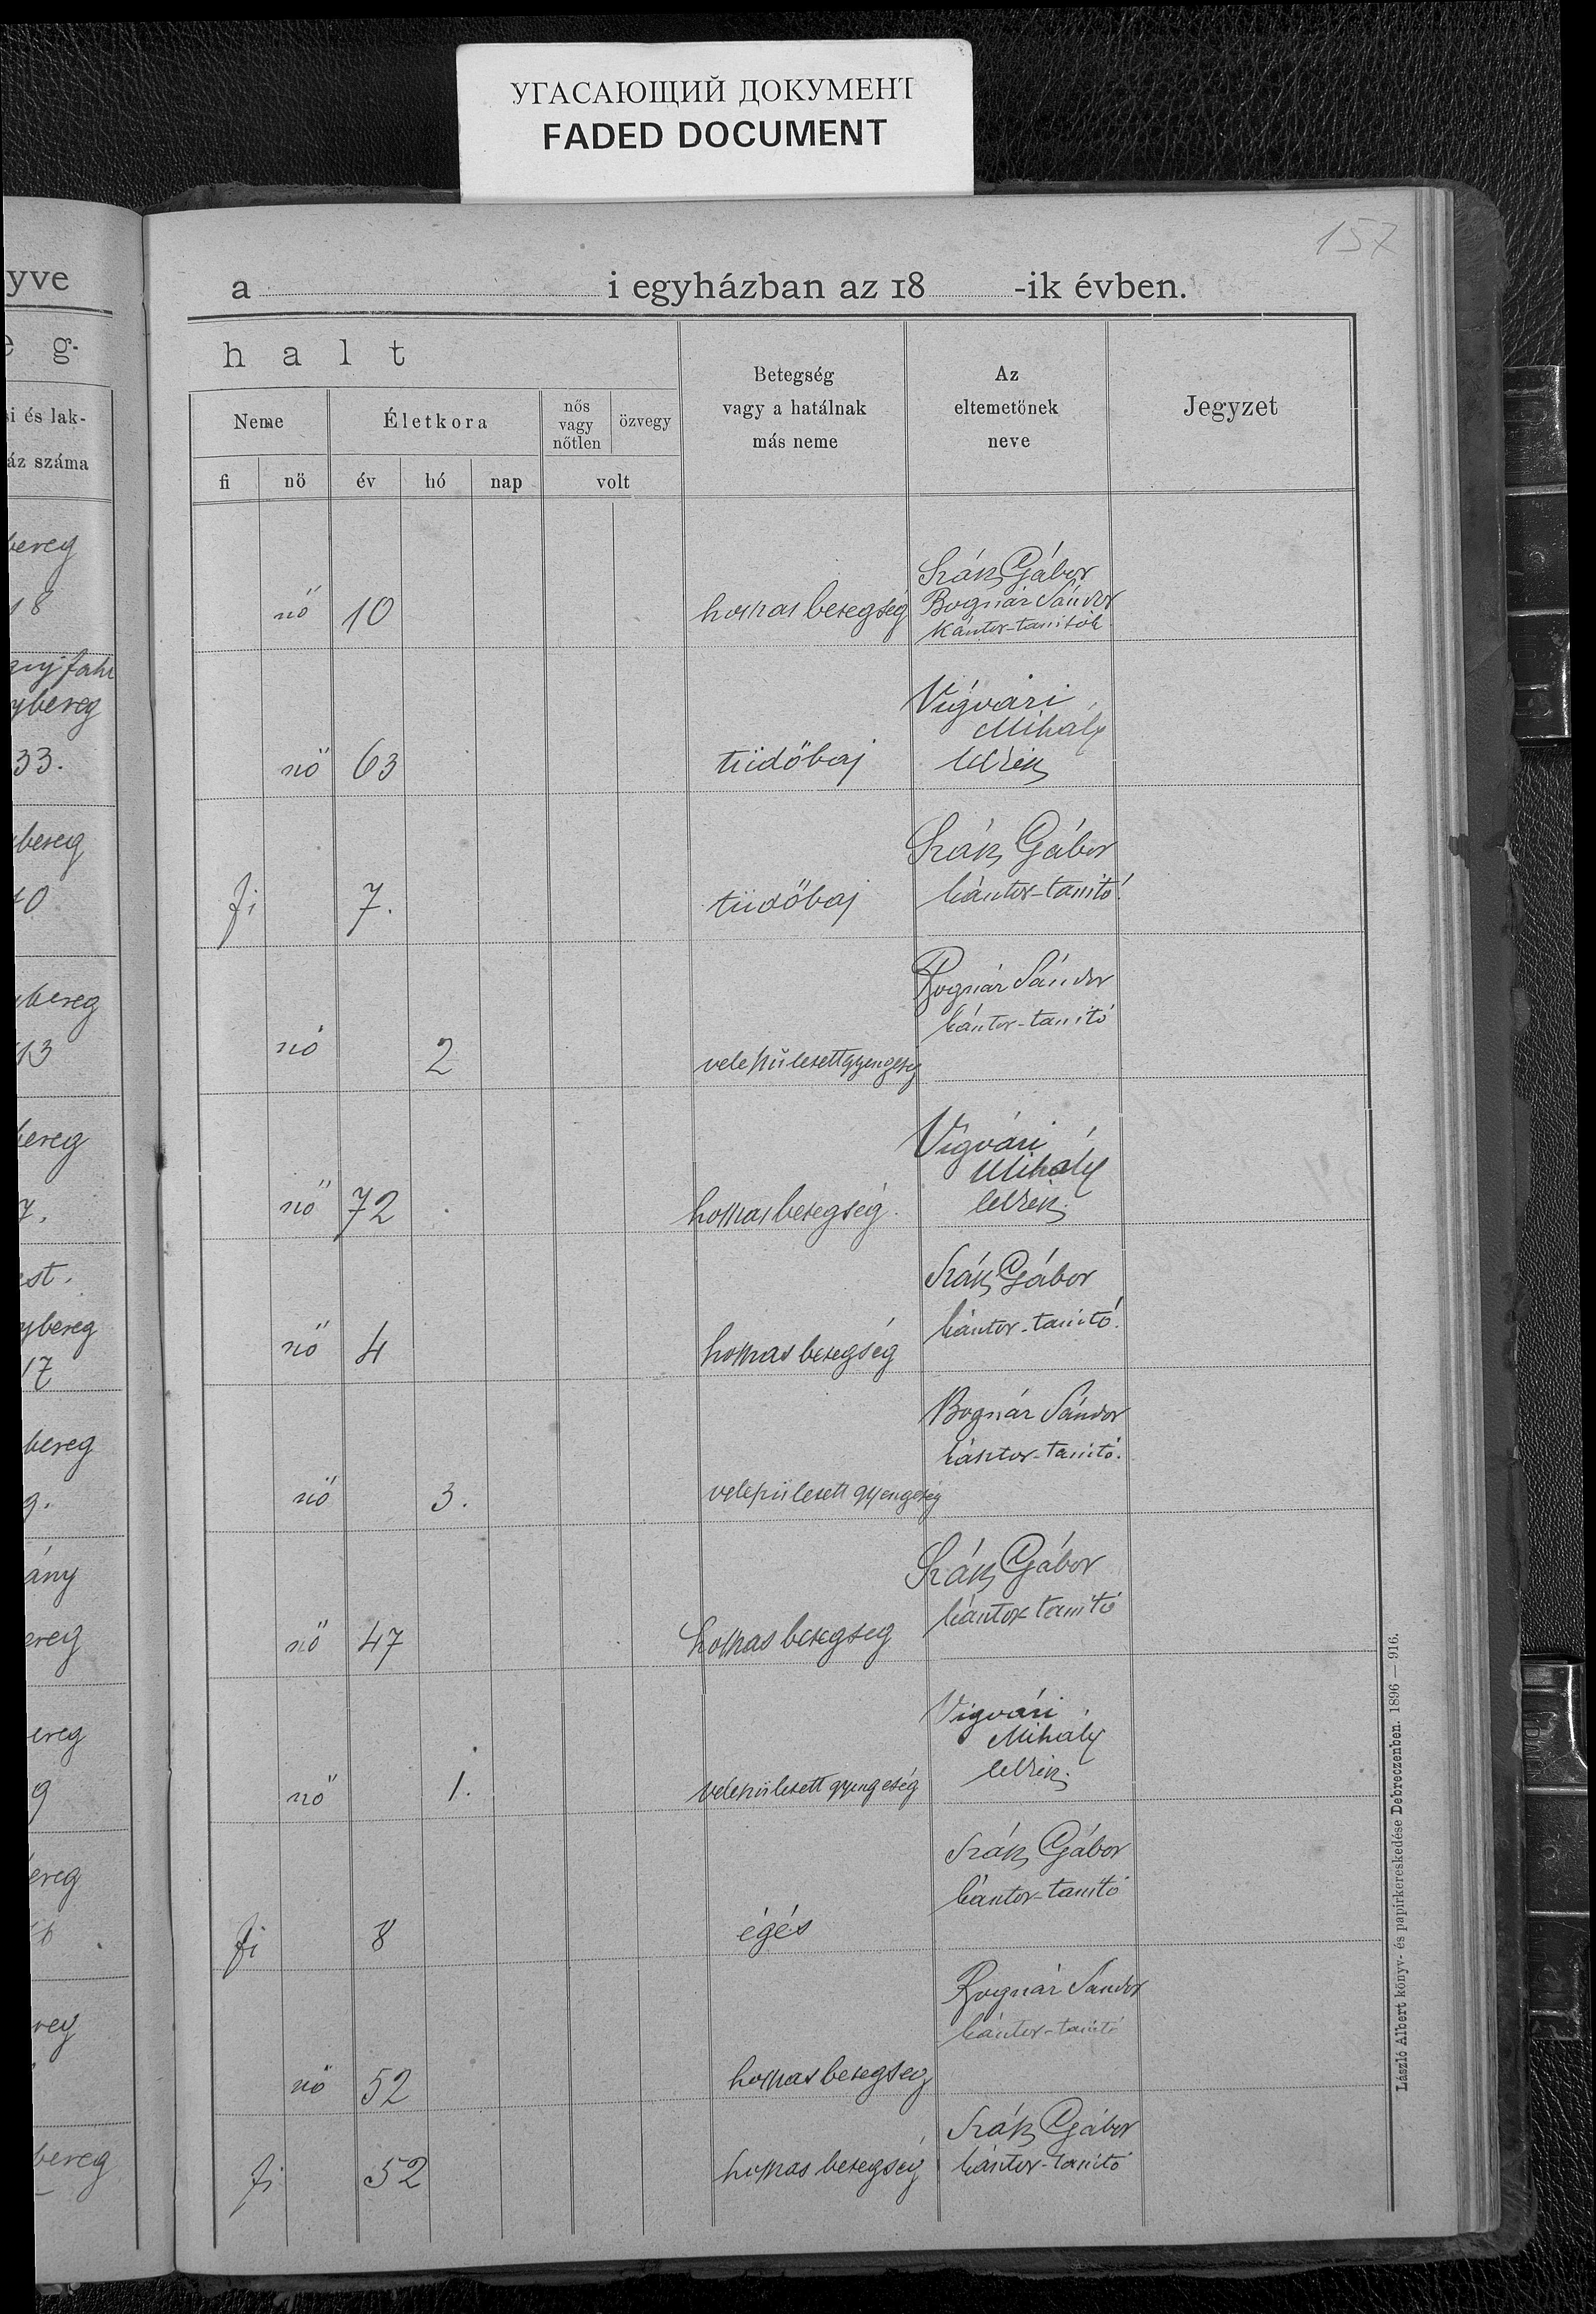 УГАСАЮЩИЙ ДОКУМЕНТ
FADED DOCUMENT
157
yve
a i egyházban az 18 -ik évben.
g-
halt
Betegség
vagy a hatálnak
más neme
Az
eltemetőnek
neve
Jegyzet
si és lak-
áz száma
Neme
Életkora
nős
vagy
nőtlen
özvegy
fi nő év hó nap volt
bereg
18
Szák Gábor
Bognár Sándor
kántor-tanitók
nő 10 hosszas betegség
ybereg
33.
Vígvári
Mihály
lelkész
nő 63 tüdőbaj
bereg
10
Szák Gábor
kántor-tanitó
fi 7. tüdőbaj
bereg
13
Bognár Sándor
kántor-tanitó
nő 2 veleszületett gyengeség
bereg
7.
Vígvári
Mihály
lelkész
nő 72 hosszas betegség
est.
ybereg
17
Szák Gábor
kántor-tanitó
nő 4 hosszas betegség
bereg
9.
Bognár Sándor
kántor-tanitó.
nő 3. veleszületett gyengeség
ány
ereg
Szák Gábor
kántor tanitó
nő 47 hosszas betegseg
ereg
9
Vigvári
Mihály
lelkész.
nő 1. veleszületett gyengeség
ereg
Szák Gábor
kántor-tanitó
fi 8 égés
reg
Bognár Sandor
kántor-tanitó
nő 52 hosszas betegseg
bereg
Szák Gábor
kántor-tanitó
fi 52 hosszas betegség
László Albert könyv- és papirkereskedése Debreczenben. 1896 — 916.